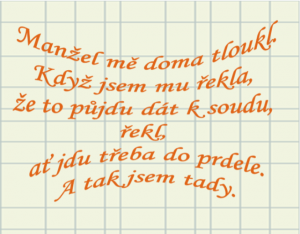 Manžel mě doma tloukl.
Když jsem mu řekla,
že to půjdu dát k soudu,
řekl,
ať jdu třeba do prdele.
A tak jsem tady.